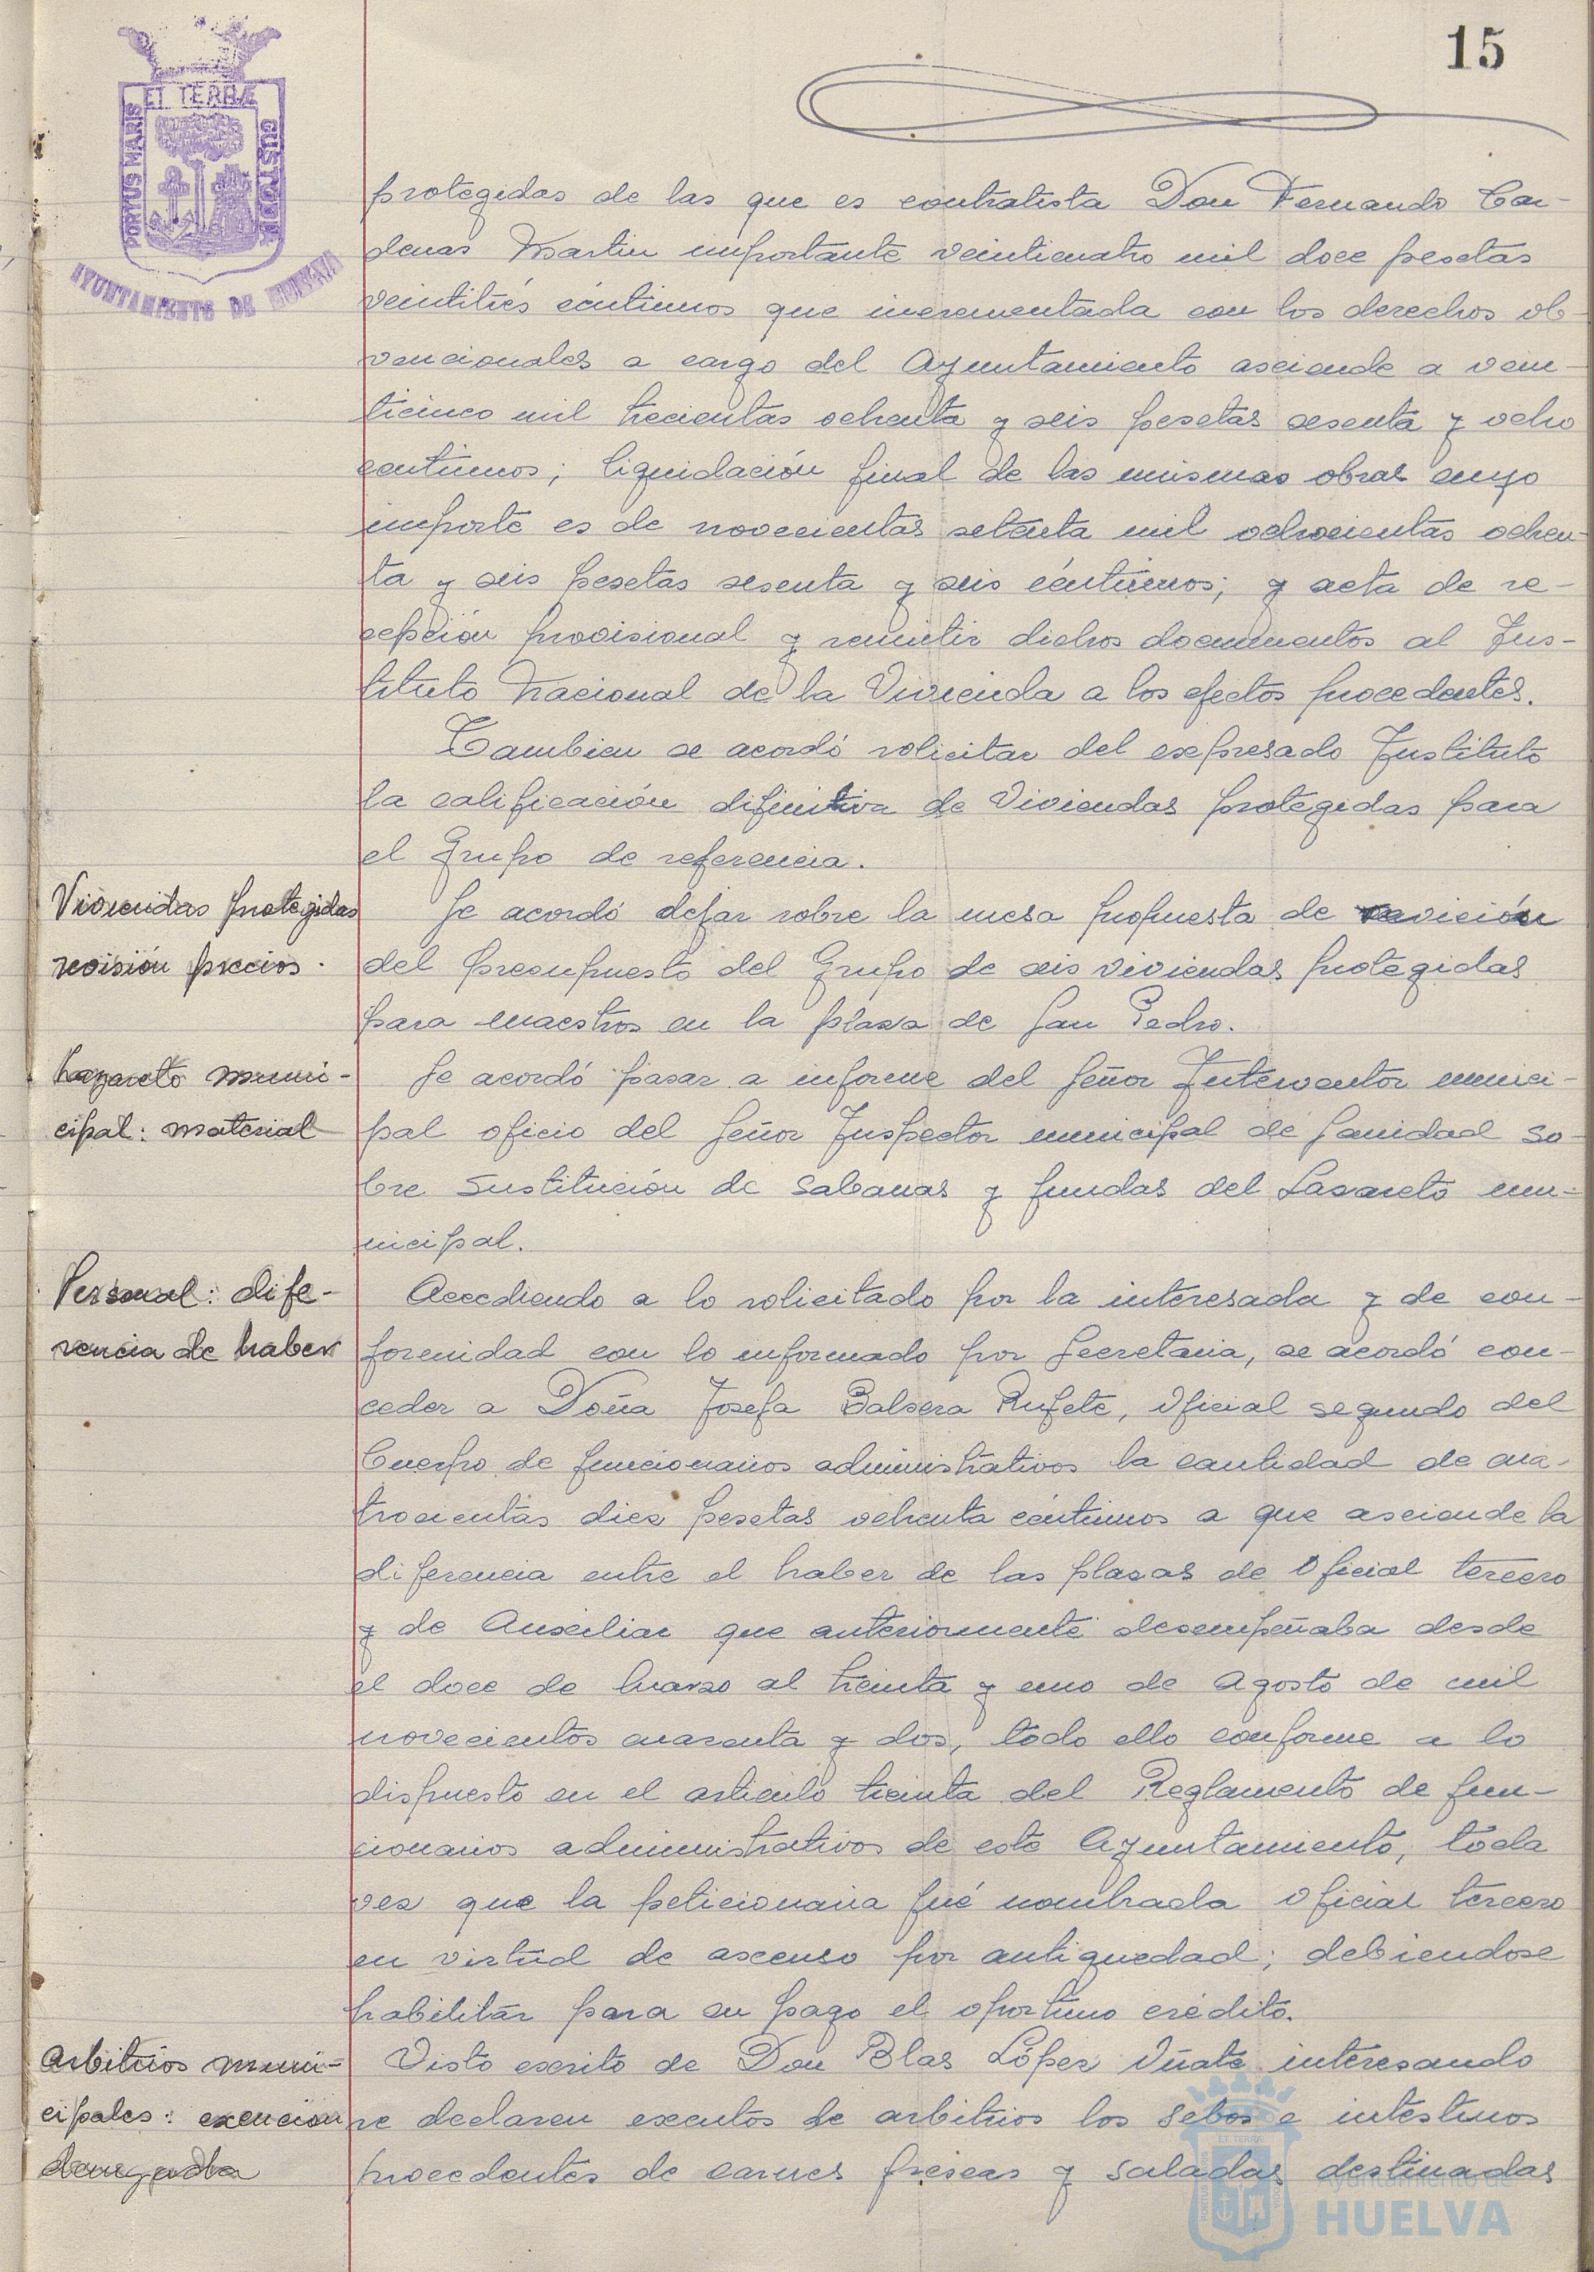 15
ET TERRÆ
PORTUS MARIS
CUSTODIA
AYUNTAMIENTO DE HUELVA
protegidas de las que es contratista Don Fernando Car-
denas Martin importante veinticuatro mil doce pesetas
veintitrés céntimos que incrementada con los derechos ob-
vencionales a cargo del Ayuntamiento asciende a vein-
ticinco mil trecientas ochenta y seis pesetas sesenta y ocho
centimos; liquidación final de las mismas obras cuyo
importe es de novecientas setenta mil ochocientas ochen-
ta y seis pesetas sesenta y seis céntimos; y acta de re-
cepción provisional y remitir dichos documentos al Ins-
tituto Nacional de la Vivienda a los efectos procedentes.
Tambien se acordó solicitar del expresado Instituto
la calificación difinitiva de Viviendas protegidas para
el Grupo de referencia.
Viviendas protegidas
revisión precios.
Se acordó dejar sobre la mesa propuesta de revición
del presupuesto del Grupo de seis viviendas protegidas
para maestros en la plaza de San Pedro.
Lazareto muni-
cipal: material
Se acordó pasar a informe del Señor Interventor munici-
pal oficio del Señor Inspector municipal de Sanidad so-
bre sustitución de sabanas y fundas del Lazareto mu-
nicipal.
Personal: dife-
rencia de haber
Accediendo a lo solicitado por la interesada y de con-
formidad con lo informado por Secretaria, se acordó con-
ceder a Doña Josefa Balsera Rufete, Oficial segundo del
Cuerpo de funcionarios administrativos la cantidad de cua-
trocientas diez pesetas ochenta céntimos a que asciende la
diferencia entre el haber de las plazas de Oficial tercero
y de Auxiliar que anteriormente desempeñaba desde
el doce de Marzo al treinta y uno de Agosto de mil
novecientos cuarenta y dos, todo ello conforme a lo
dispuesto en el articulo treinta del Reglamento de fun-
cionarios administrativos de este Ayuntamiento, toda
vez que la peticionaria fué nombrada Oficial tercero
en virtud de ascenso por antiguedad; debiendose
habilitar para su pago el oportuno crédito.
Arbitrios muni-
cipales: exencion
denegada
Visto escrito de Don Blas López Uñate interesando
se declaren exentos de arbitrios los sebos e intestinos
procedentes de carnes frescas y saladas destinadas
Ayuntamiento de
HUELVA